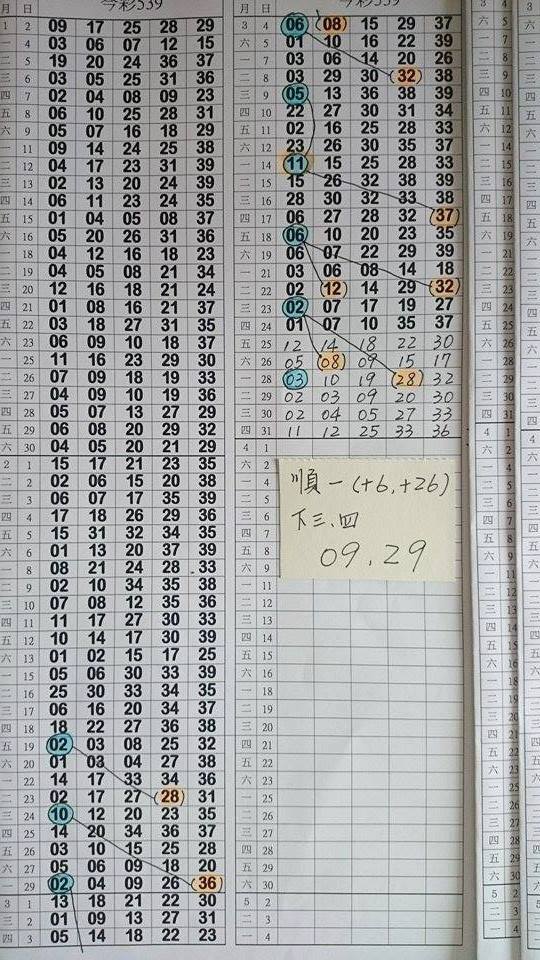 今彩539
月 日
1 2 09 17 25 28 29
一 4 03 06 07 12 15
二 5 19 20 24 36 37
三 6 03 05 25 31 36
四 7 02 04 08 09 23
五 8 06 10 25 28 31
六 9 05 07 16 18 29
一 11 09 14 24 25 38
二 12 04 17 23 31 39
三 13 02 13 20 24 39
四 14 06 11 23 24 35
五 15 01 04 05 08 37
六 16 05 20 26 31 36
一 18 04 12 16 18 23
二 19 04 05 08 21 34
三 20 12 16 18 21 24
四 21 01 08 16 21 37
五 22 03 18 27 31 35
六 23 06 09 10 18 37
一 25 11 16 23 29 30
二 26 07 09 18 19 33
三 27 04 09 10 19 36
四 28 05 07 13 27 29
五 29 06 08 20 29 32
六 30 04 05 20 21 29
2 1 15 17 21 23 35
二 2 02 06 15 20 38
三 3 06 07 17 35 39
四 4 17 18 26 29 36
五 5 15 31 32 34 35
六 6 01 13 20 37 39
一 8 08 21 24 28 33
二 9 02 10 34 35 38
三 10 07 08 12 35 36
四 11 11 17 27 30 33
五 12 10 14 17 30 39
六 13 01 02 15 17 25
一 15 05 06 30 33 39
二 16 25 30 33 34 35
三 17 06 16 20 34 37
四 18 18 22 27 36 38
五 19 02 03 08 25 32
六 20 01 03 04 27 38
一 22 14 17 33 34 36
二 23 02 17 27 28 31
三 24 10 12 20 23 35
四 25 14 20 34 36 37
五 26 03 10 15 25 28
六 27 05 06 09 18 20
一 29 02 04 09 26 36
3 1 13 18 21 22 30
三 2 01 09 13 27 31
四 3 05 14 18 22 23
今彩539
月 日
3 4 06 08 15 29 37
六 5 01 10 16 22 39
一 7 03 06 14 20 26
二 8 03 29 30 32 38
三 9 05 13 36 38 39
四 10 22 27 30 31 34
五 11 02 16 25 28 33
六 12 23 26 30 35 37
一 14 11 15 25 28 33
二 15 15 26 32 38 39
三 16 28 30 32 33 38
四 17 06 27 28 32 37
五 18 06 10 20 23 35
六 19 06 07 22 29 39
一 21 03 06 08 14 18
二 22 02 12 14 29 32
三 23 02 07 17 19 27
四 24 01 07 10 35 37
五 25 12 14 18 22 30
六 26 05 08 09 15 17
一 28 03 10 19 28 32
二 29 02 03 09 20 30
三 30 02 04 05 27 33
四 31 11 12 25 33 36
4 1
六 2
順一(+6,+26)
下三.四
09.29
一 11
二 12
三 13
四 14
五 15
六 16
一 18
二 19
三 20
四 21
五 22
六 23
一 25
二 26
三 27
四 28
五 29
六 30
5 2
二 3
三 4